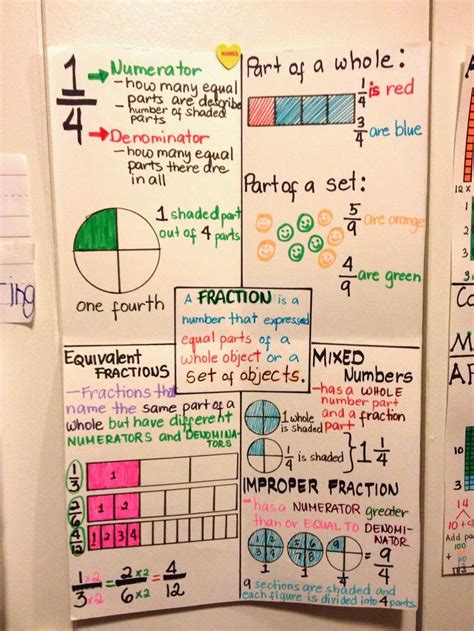 1
4
Numerator
- how many equal
parts are describe
number of shaded
parts
Denominator
- how many equal
parts there are
in all
1 shaded part
out of 4 parts
one fourth
Part of a whole:
1/4 is red
3/4 are blue
Part of a set:
5/9 are orange
4/9 are green
A FRACTION is a
number that expresses
equal parts of a
whole object or a
set of objects.
Equivalent
FRACTIONS
- Fractions that
name the same part of a
whole but have different
NUMERATORS and DENOMINA-
TORS
1/3 1
2/6 1 2
1 2 3 4
1/3 ×2 ×2 = 2/6 ×2 ×2 = 4/12
MIXED
Numbers
- has a WHOLE
number part
and a fraction
part
1 whole
is shaded
1/4 is shaded } 1 1/4
IMPROPER FRACTION
- has a NUMERATOR greater
than or EQUAL TO DENOMI-
NATOR
1 2 3 4 5 6 7 8 9 = 9/4
9 sections are shaded and
each figure is divided into 4 parts.
ting
Add
100
10